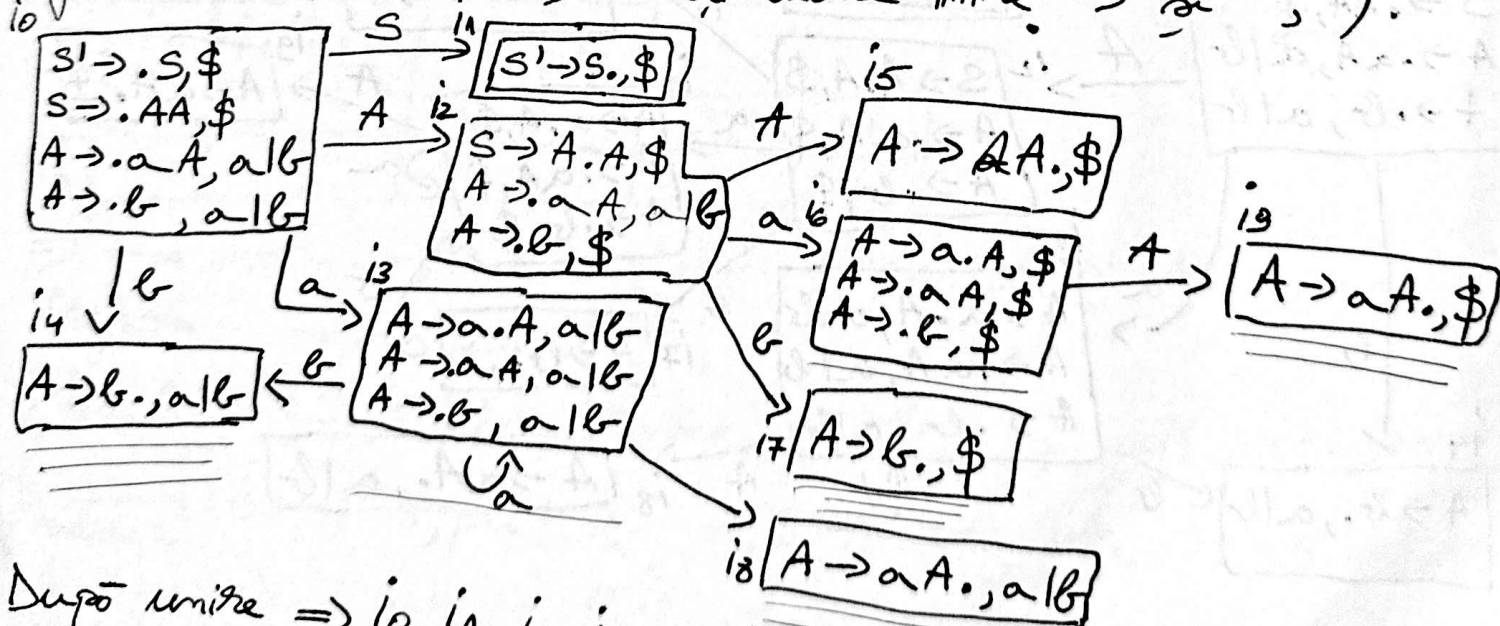 i0
S' → .S, $
S → .AA, $
A → .aA, a|b
A → .b, a|b
S
i1
S' → S., $
A
i2
S → A.A, $
A → .aA, a|b
A → .b, $
A
i5
A → AA., $
a
i6
A → a.A, $
A → .aA, $
A → .b, $
A
i9
A → aA., $
b
i4
A → b., a|b
a
i3
A → a.A, a|b
A → .aA, a|b
A → .b, a|b
b
a
b
i7
A → b., $
i8
A → aA., a|b
După unire ⇒ i0 i1